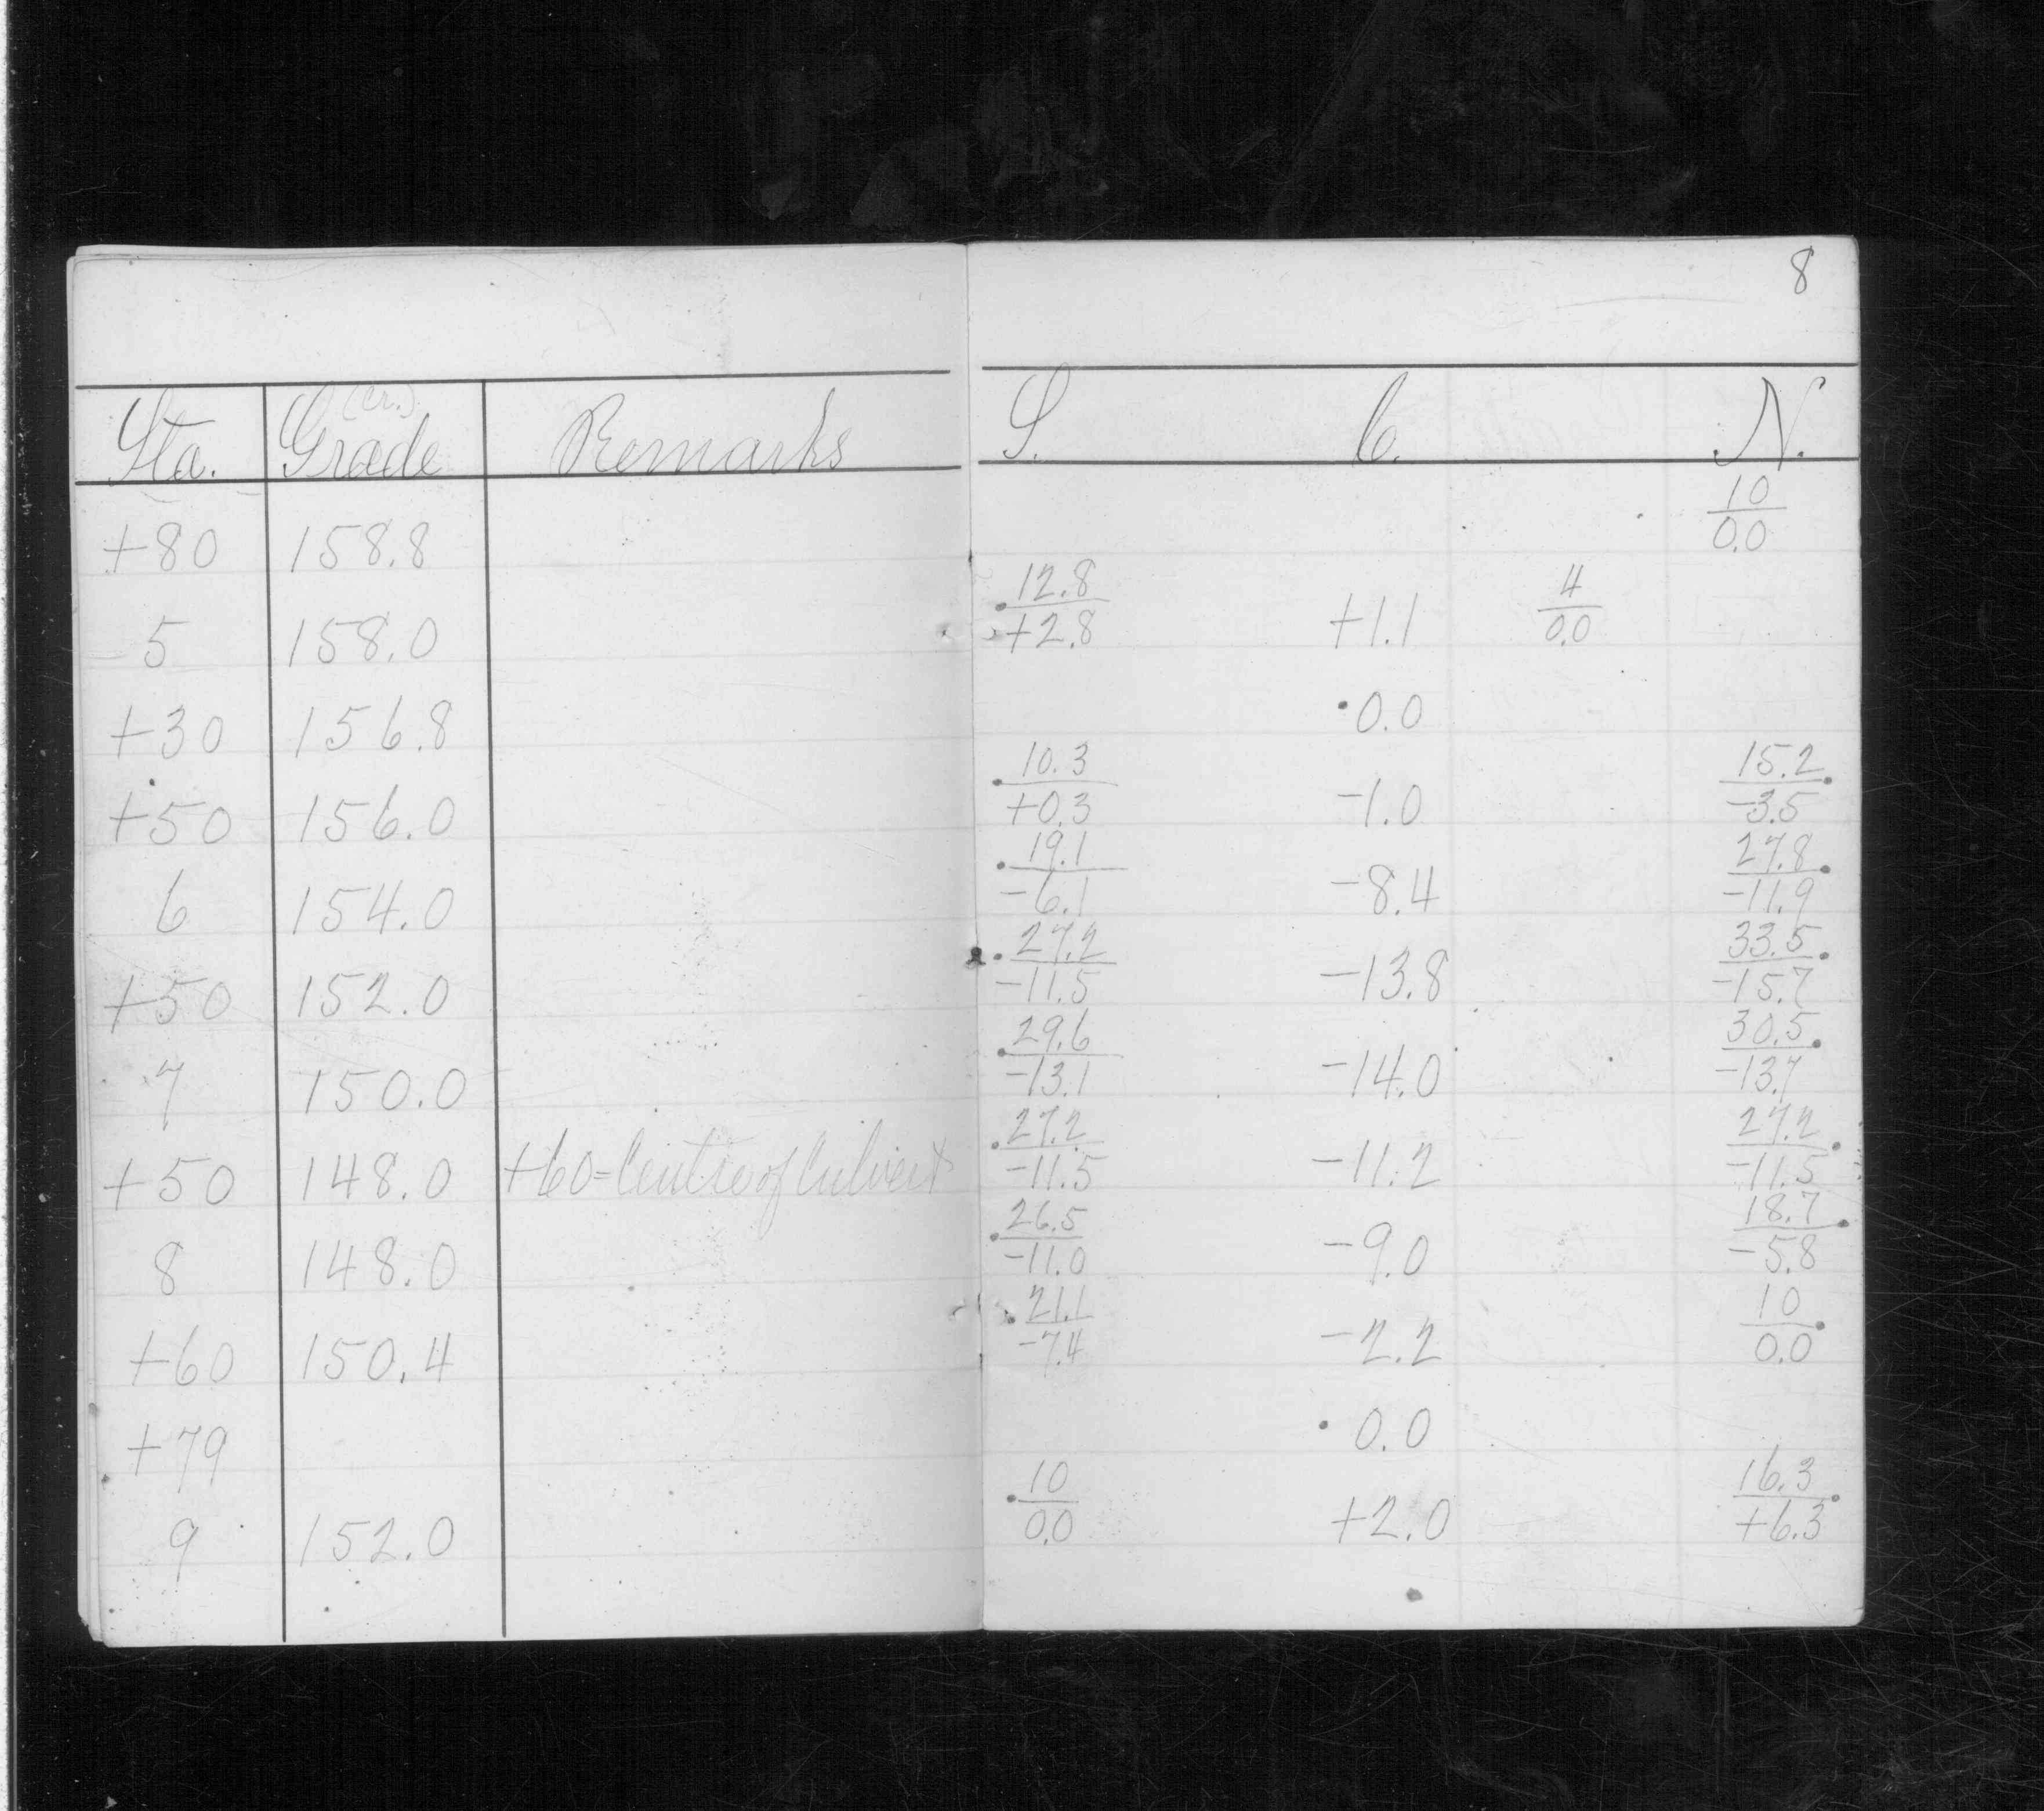 8
(Cr.)
Sta. Grade Remarks S. C. N.
+80 158.8 10/0.0
5 158.0 12.8/+2.8 +1.1 4/0.0
+30 156.8 0.0
+50 156.0 10.3/+0.3 -1.0 15.2/-3.5
6 154.0 19.1/-6.1 -8.4 27.8/-11.9
+50 152.0 27.2/-11.5 -13.8 33.5/-15.7
7 150.0 29.6/-13.1 -14.0 30.5/-13.7
+50 148.0 +60=Centre of Culvert 27.2/-11.5 -11.2 27.2/-11.5
8 148.0 26.5/-11.0 -9.0 18.7/-5.8
+60 150.4 21.1/-7.4 -2.2 10/0.0
+79 0.0
9 152.0 10/0.0 +2.0 16.3/+6.3